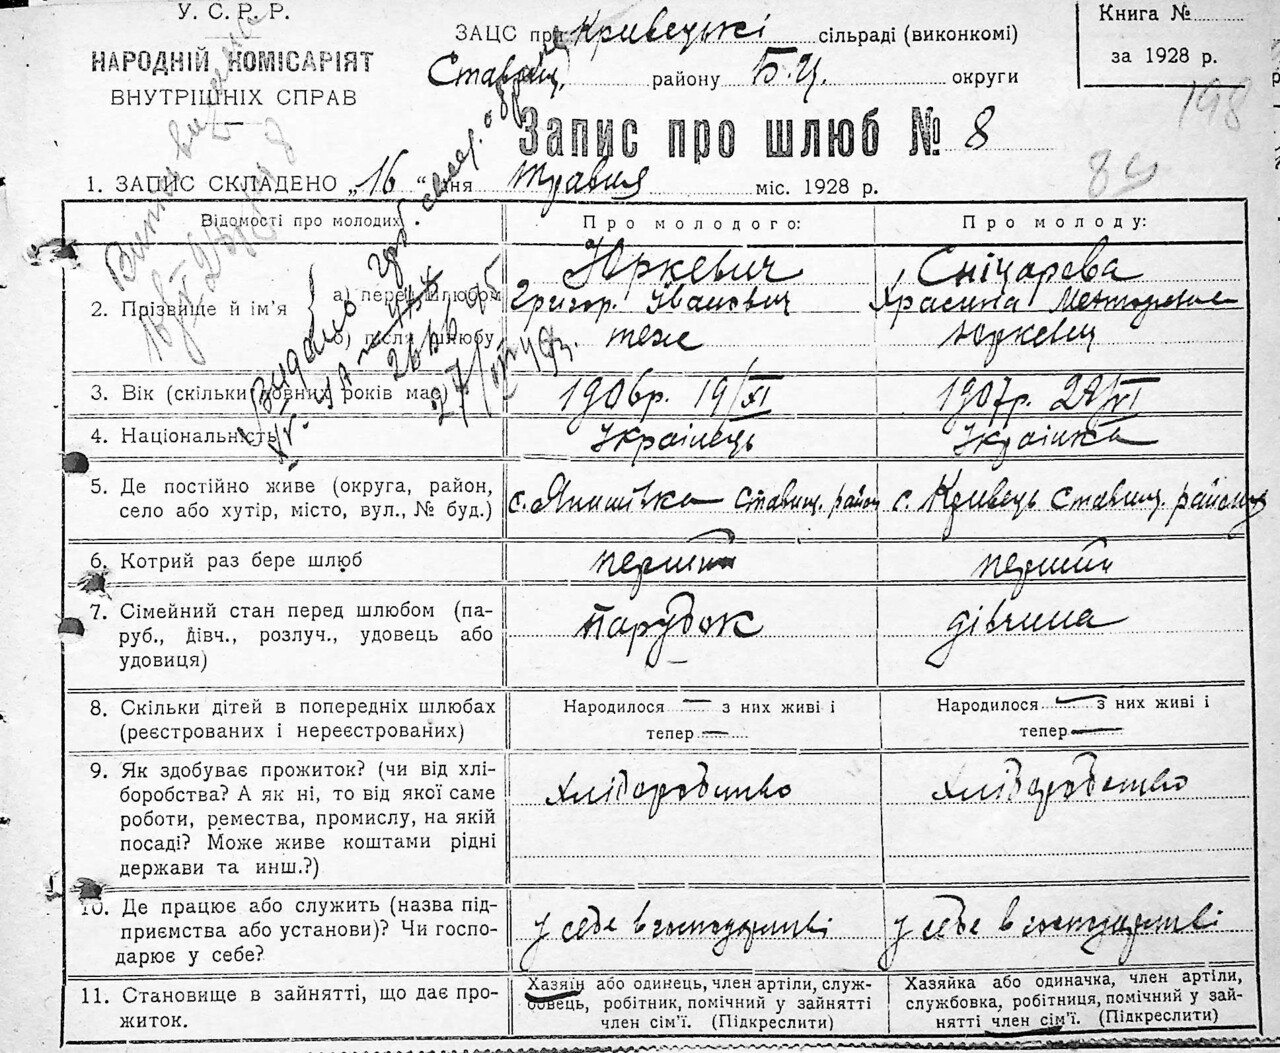 У. С. Р. Р.
НАРОДНІЙ КОМІСАРІЯТ
ВНУТРІШНІХ СПРАВ
ЗАЦС при Кривецькі сільраді (виконкомі)
Ставищ. району Б.Ц. округи
Книга №
за 1928 р.
198
Запис про шлюб № 8
84
1. ЗАПИС СКЛАДЕНО „16“ дня травня міс. 1928 р.
Відомості про молодих
Про молодого:
Про молоду:
2. Прізвище й ім'я
а) перед шлюбом
Юркевич
Григор. Іванович
Сніцарева
б) після шлюбу
теже
Юркевич
3. Вік (скільки повних років має)
1906р. 19/XI
1907р. 22/VI
4. Національність
Українець
Українка
5. Де постійно живе (округа, район,
село або хутір, місто, вул., № буд.)
с. Янишівка Ставищ. район
с. Кривець Ставищ. району
6. Котрий раз бере шлюб
перший
перший
7. Сімейний стан перед шлюбом (па-
руб., дівч., розлуч., удовець або
удовиця)
Парубок
дівчина
8. Скільки дітей в попередніх шлюбах
(реєстрованих і нереєстрованих)
Народилося — з них живі і
тепер —
Народилося — з них живі і
тепер —
9. Як здобуває прожиток? (чи від хлі-
боробства? А як ні, то від якої саме
роботи, ремества, промислу, на якій
посаді? Може живе коштами рідні
держави та инш.?)
Хліборобство
Хліборобство
10. Де працює або служить (назва під-
приємства або установи)? Чи госпо-
дарює у себе?
у себе в господарстві
у себе в господарстві
11. Становище в зайнятті, що дає про-
житок.
Хазяїн або одинець, член артіли, служ-
бовець, робітник, помічний у зайнятті
член сім'ї. (Підкреслити)
Хазяйка або одиначка, член артіли,
службовка, робітниця, помічний у зай-
нятті член сім'ї. (Підкреслити)